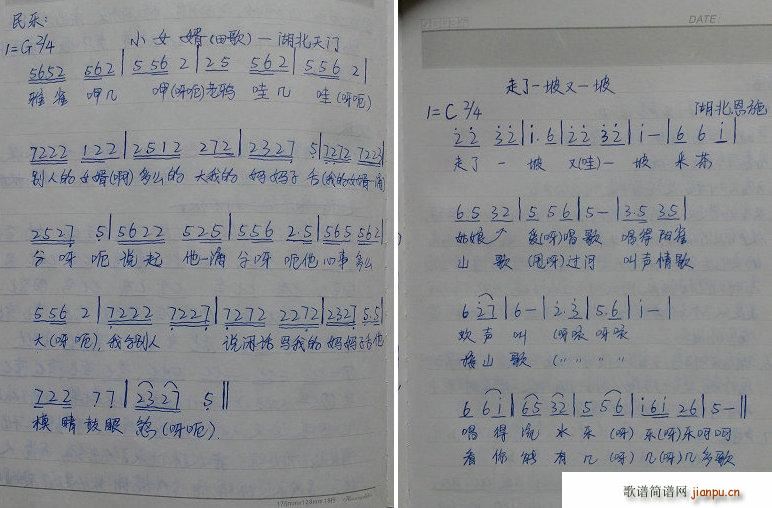 民乐:
小女婿(田歌)—湖北天门
1=G 2/4
5652 562 | 5 56 2 | 2 5 562 | 5 56 2 |
雅雀 呷几 呷(呀呃)老鸦 哇几 哇(呀呃)
7222 122 | 2512 272 | 2327 5 | 7272 7222 |
别人的女婿(啊)多么的 大我的 妈妈子 舌(我的女婿
2527 5 | 5622 525 | 556 2·5 | 565 562 |
呀 呃 说起 他一 呀 呃他 心事 多么
5 56 2 | 7222 7227 | 7272 2272 | 2327 5·5 |
大(呀 呃), 我与别人 说闲话 骂我的 妈妈子舌他
722 77 | 2327 5 ‖
模 睛鼓眼 (呀呃).
DATE:
走了一坡又一坡
1=C 2/4 湖北恩施
2̇2̇ 3̇2̇ | i·6 | 2̇2̇ 3̇2̇ | i — | 6 6 i |
走了 一 坡 又(哇)一 坡 采茶
65 32 | 5 56 | 5 — | 3·5 35 |
姑娘 爱(呀)唱歌 唱得阳雀
山 歌 (甩呀)过河 叫声情歌
6 2̇7 | 6 — | 2·3 | 5·6 | i — |
欢声 叫 (呀咳 呀咳
接山 歌 (〃 〃 〃 〃
6 6i | 65 32 | 5 56 | i6i 26 | 5 — ‖
唱 得 流 水 乐 (呀) 乐(呀)乐呵呵
看你 能 有 几 (呀) 几(呀)几多歌
176mm×128mm
歌谱简谱网 jianpu.cn